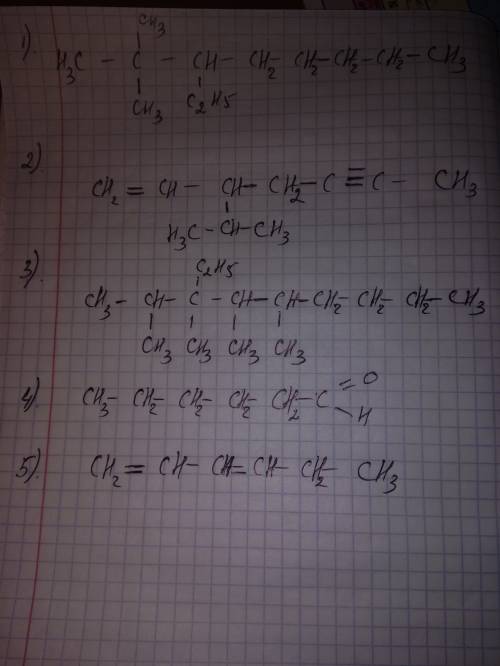 CH₃
1). H₃C - C - CH - CH₂ - CH₂ - CH₂ - CH₂ - CH₃
CH₃ C₂H₅
2) CH₂ = CH - CH - CH₂ - C ≡ C - CH₃
H₃C - CH - CH₃
3) C₂H₅
CH₃ - CH - C - CH - CH - CH₂ - CH₂ - CH₂ - CH₃
CH₃ CH₃ CH₃ CH₃
4) CH₃ - CH₂ - CH₂ - CH₂ - CH₂ - C = O
- H
5). CH₂ = CH - CH = CH - CH₂ - CH₃